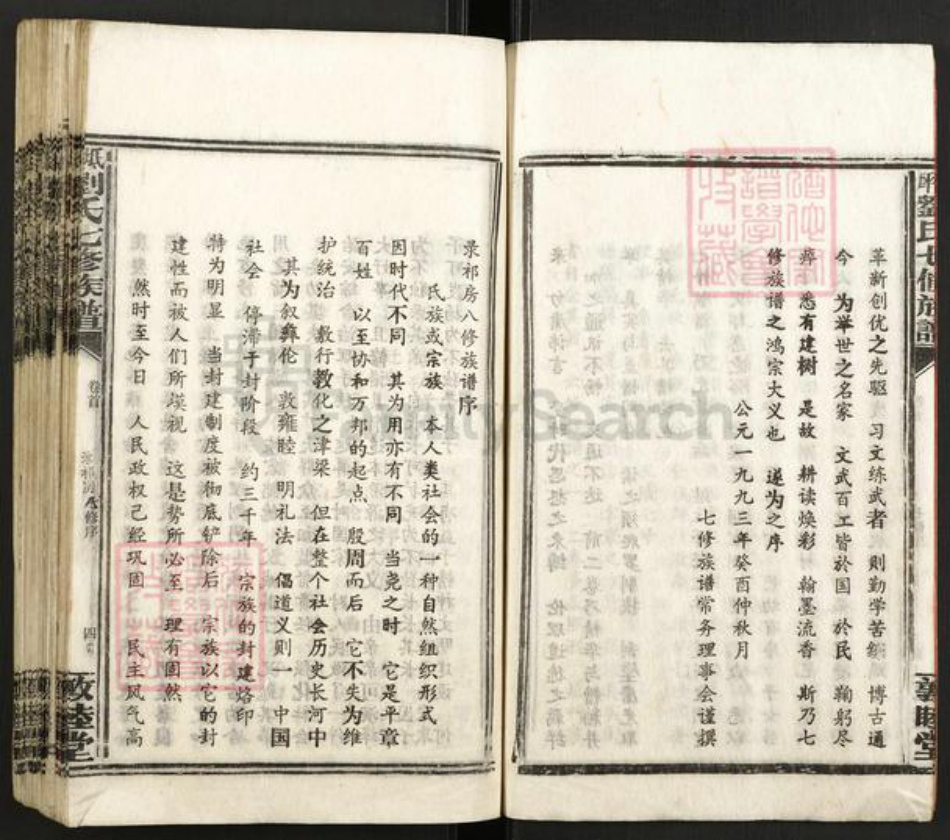 革新创优之先驱　习文练武者　则勤学苦练　博古通
今人　为举世之名家　文武百工皆於国　於民　鞠躬尽
瘁　悉有建树　是故　耕读焕彩　翰墨流香　斯乃七
修族谱之鸿宗大义也　遂为之序
公元一九九三年癸酉仲秋月
七修族谱常务理事会谨撰
劉氏七修族譜
敦睦堂
录祁房八修族谱序
氏族或宗族　本人类社会的一种自然组织形式
因时代不同　其为用亦有不同　当尧之时　它是平章
百姓　以至协和万邦的起点　殷周而后　它不失为维
护统治　敷行教化之津梁　但在整个社会历史长河中
其为叙彝伦　敦雍睦　明礼法　倡道义则一　中国
社会　停滞于封阶段　约三千年　宗族的封建烙印
特为明显　当封建制度被彻底铲除后　宗族以它的封
建性而被人们所漠视　这是势所必至　理有固然
然时至今日　人民政权已经巩固　民主风气高
劉氏七修族譜
卷首
八修序
敦睦堂
FamilySearch